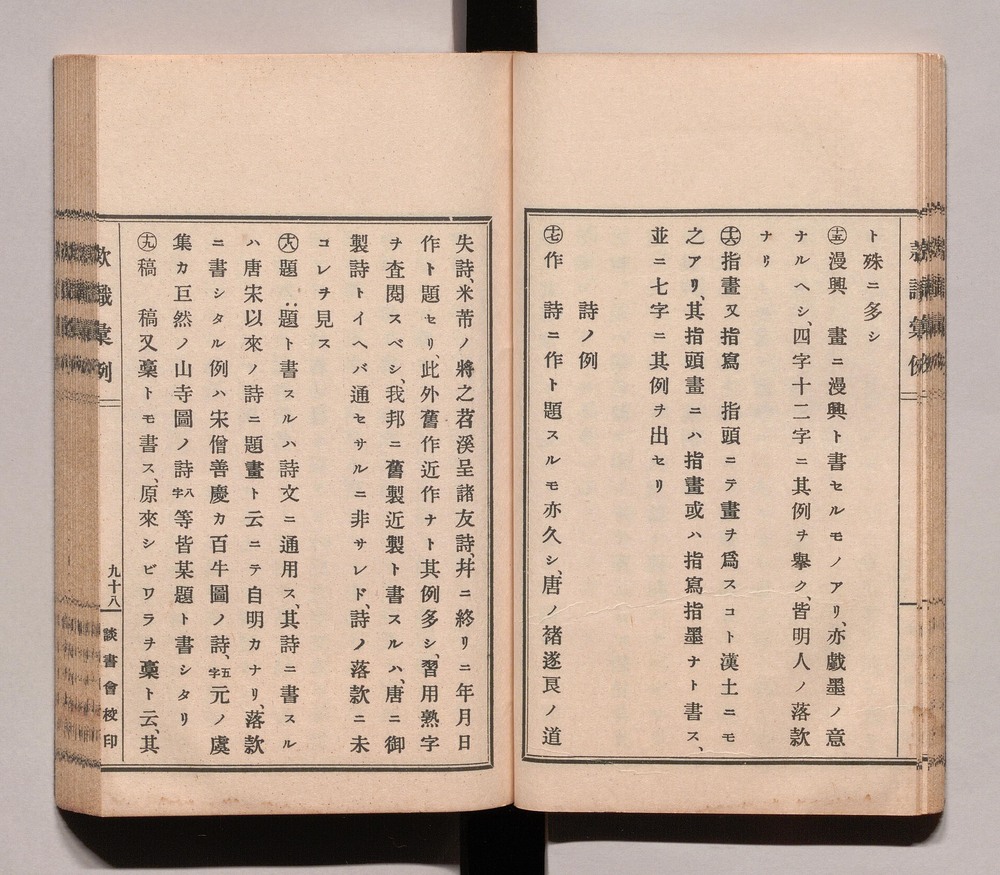 ト殊ニ多シ
㊄漫興　畫ニ漫興ト書セルモノアリ、亦戯墨ノ意
ナルヘシ、四字十二字ニ其例ヲ擧ク、皆明人ノ落款
ナリ
指畫又指寫　指頭ニテ畫ヲ爲スコト漢土ニモ
之アリ、其指頭畫ニハ指畫或ハ指寫指墨ナト書ス、
並ニ七字ニ其例ヲ出セリ
詩ノ例
作　詩ニ作ト題スルモ亦久シ、唐ノ褚遂良ノ道
失詩、米芾ノ將之苕溪呈諸友詩、幷ニ終リニ年月日
作ト題セリ、此外舊作近作ナト其例多シ、習用熟字
ヲ査閲スベシ、我邦ニ舊製近製ト書スルハ、唐ニ御
製詩トイヘバ通セサルニ非サレド、詩ノ落款ニ未
コレヲ見ス
題　題ト書スルハ詩文ニ通用ス、其詩ニ書スル
ハ唐宋以來ノ詩ニ題畫ト云ニテ自明カナリ、落款
ニ書シタル例ハ宋僧善慶カ百牛圖ノ詩、五字元ノ虞
集カ巨然ノ山寺圖ノ詩八字等皆某題ト書シタリ
稿　稿又稾トモ書ス、原來シビワラヲ稾ト云、其
款識彙例
九十八
談書會校印